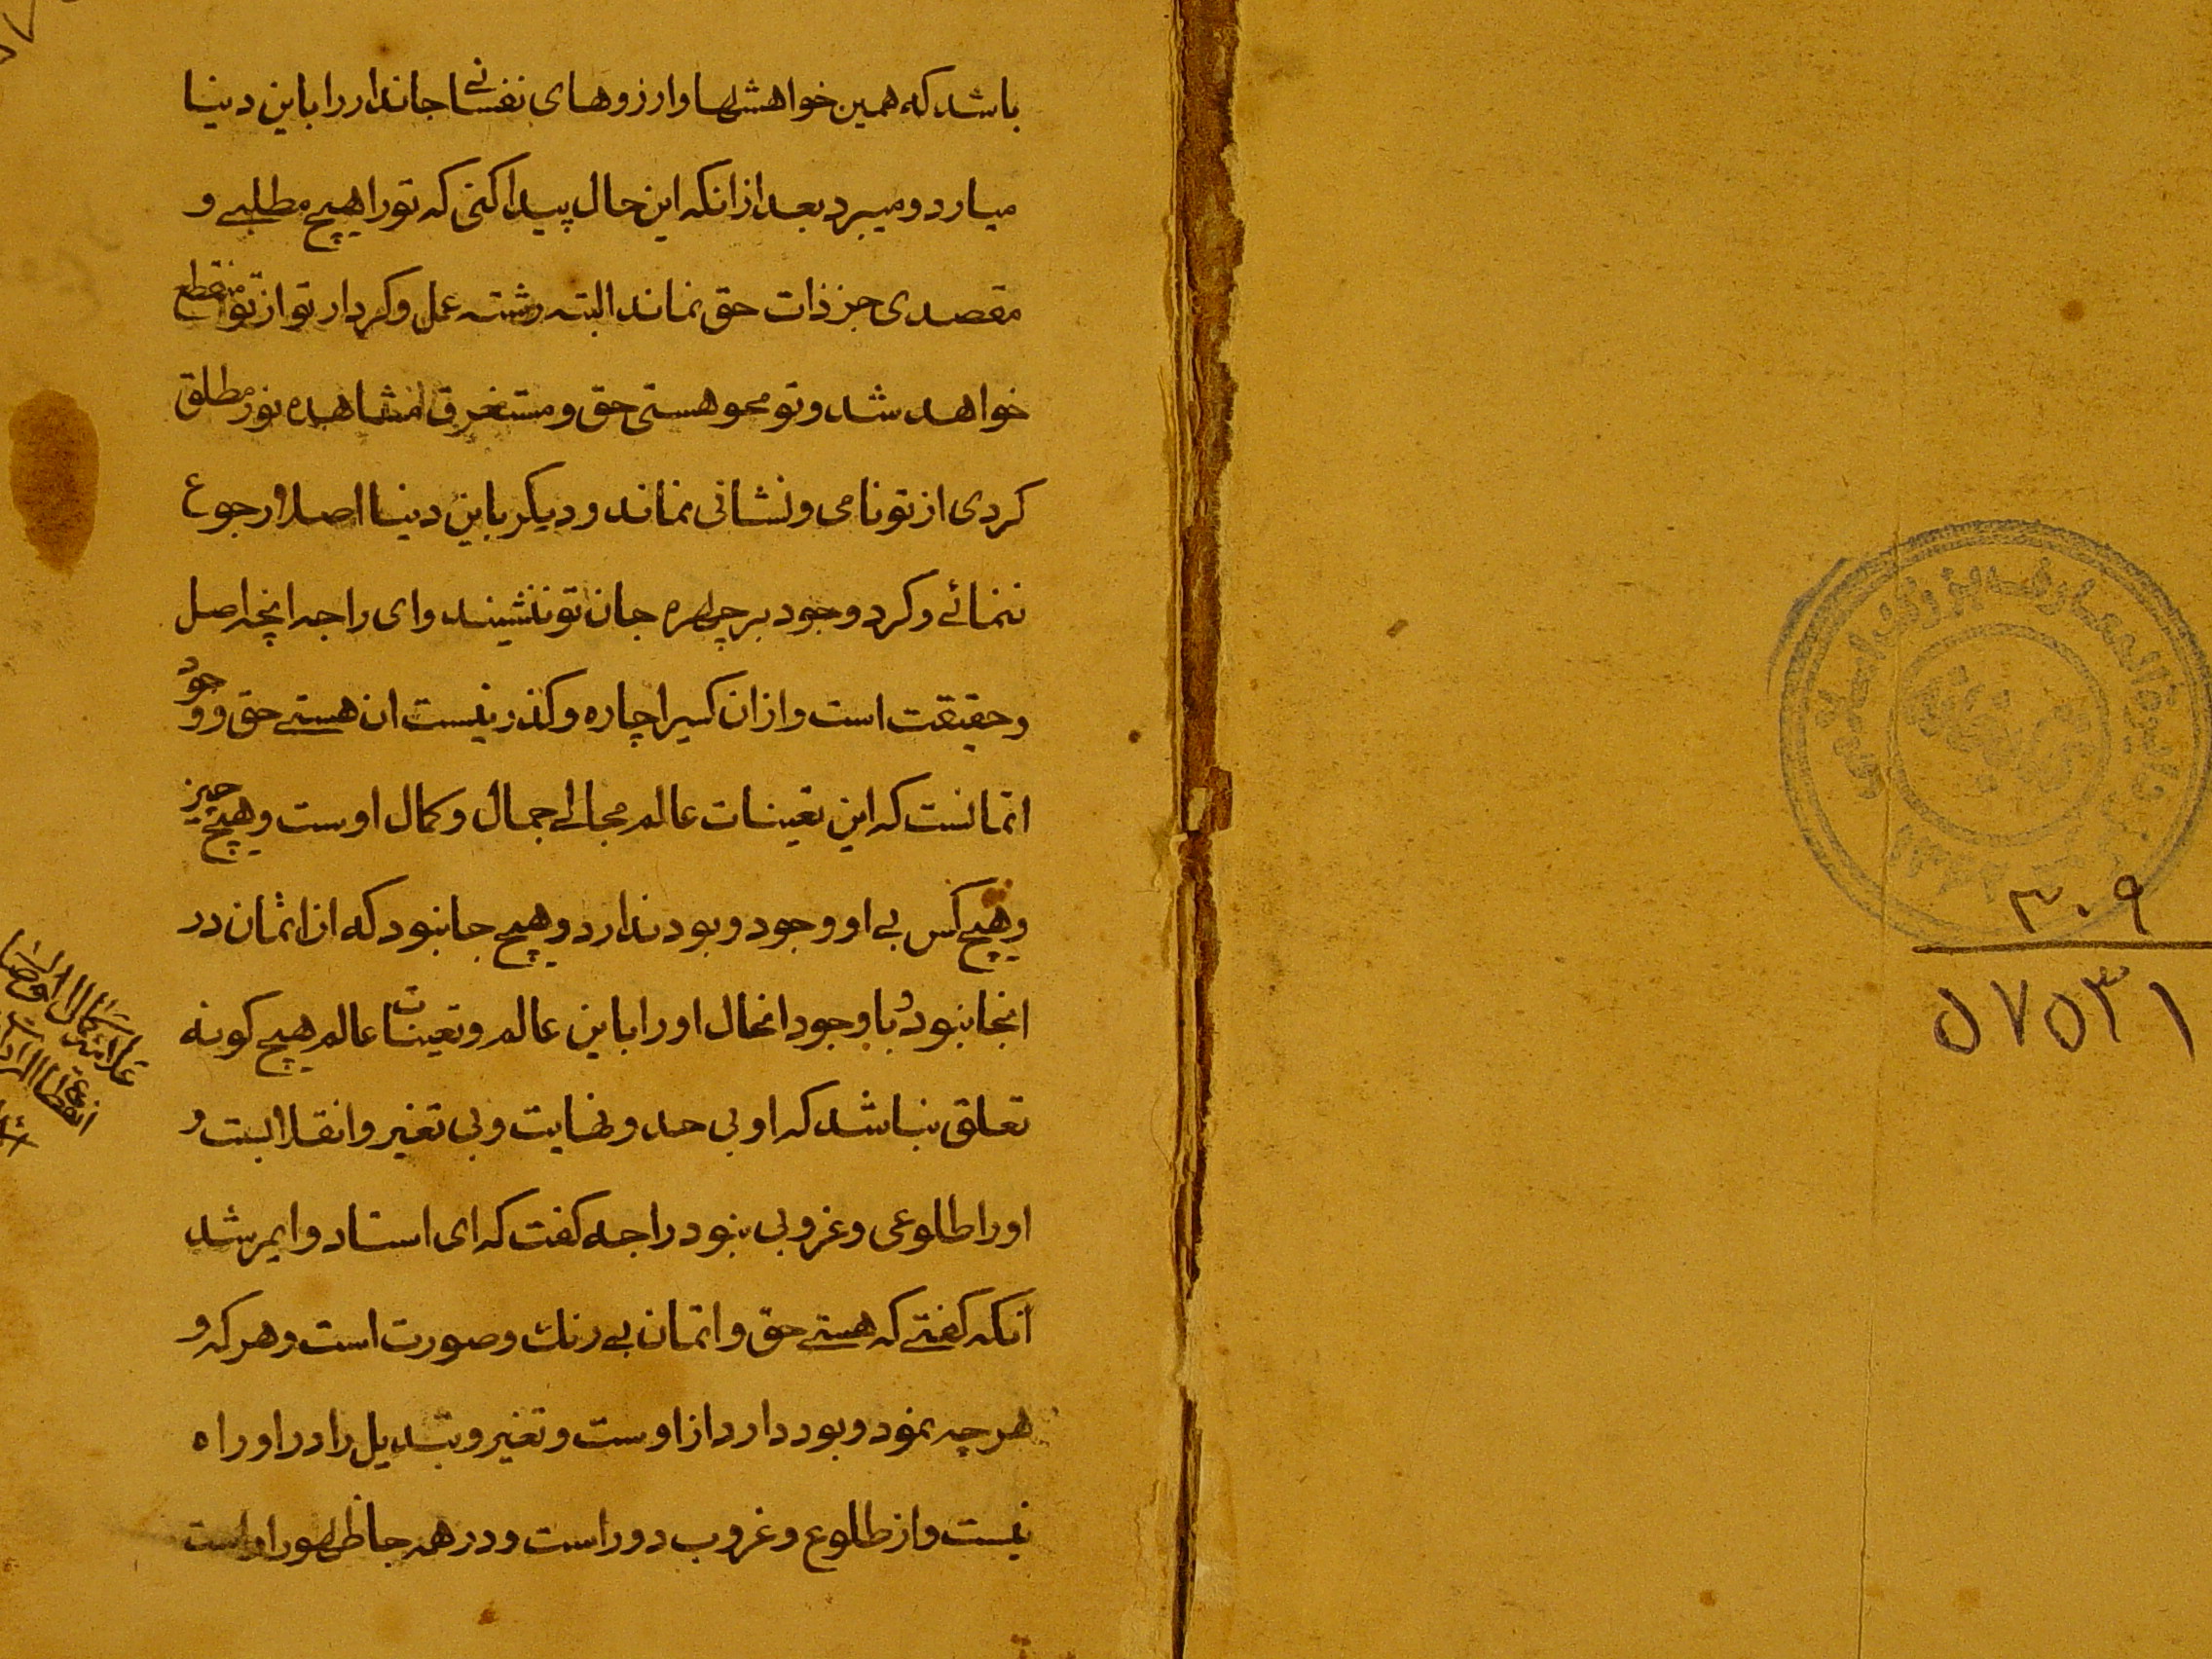 باشد که همین خواهشها و ارزوهای نفسانے جاندار را باین دنیا
میارد و میبرد بعد از انکه این حال پیدا کنی که تو را هیچ مطلبے و
مقصدی جز ذات حق نماند البته رشته عمل و کردار تو از تو منقطع
خواهد شد و تو محو هستی حق و مستغرق مشاهده نور مطلق
کردی از تو نامی و نشانی نماند و دیکر باین دنیا اصلا رجوع
ننمائے و کرد وجود بر چهره جان تو ننشیند و ای راجه انچه اصل
و حقیقت است و از ان کسیرا چاره و کذر نیست ان هستے حق و وجود
اتمانست که این تعینات عالم مجالے جمال و کمال اوست و هیچ چیز
و هیچ کس بے او وجود و بود ندارد و هیچ جا نبود که از اتمان در
انجا نبود و با وجود انحال او را باین عالم و تعینات عالم هیچ کونه
تعلق نباشد که او بی حد و نهایت و بی تغیر و انقلابست و
او را طلوعی و غروبی نبود راجه کفت که ای استاد و ایمرشد
انکه کفتے که هستے حق و اتمان بے رنك و صورت است و هر که و
هر چه نمود و بود دارد از اوست و تغیر و تبدیل را در او راه
نیست و از طلوع و غروب دور است و در همه جا ظهور اواست
دایرة المعارف بزرگ اسلامی
۳۰۹
۵۷۵۳۱